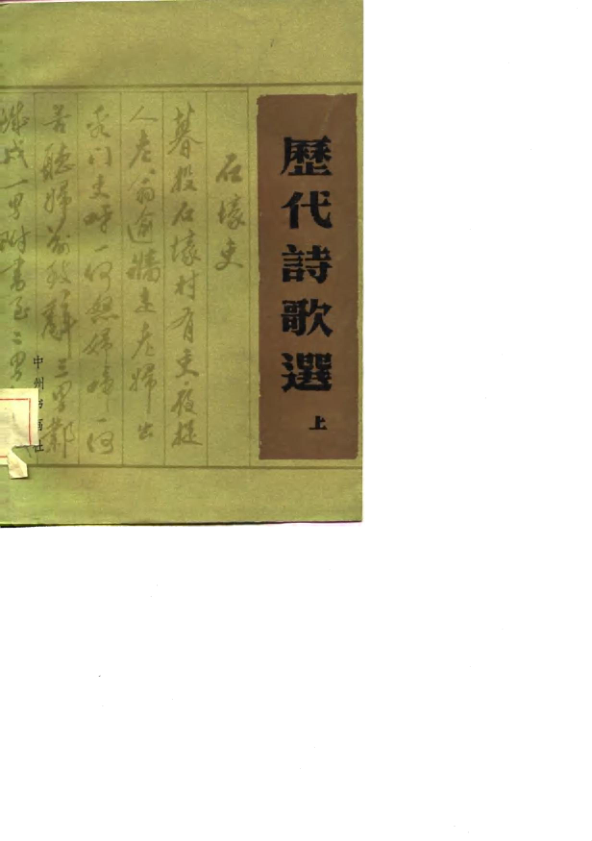 歷代詩歌選
上
石壕吏
暮投石壕村有吏夜捉
人老翁逾牆走老婦出
門吏呼一何怒婦啼一何
苦聽婦前致辭三男鄴
城戍一男附書至二男
中州书画社